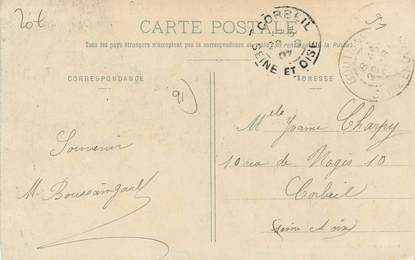 20t
CARTE POSTALE
Tous les pays étrangers n'acceptent pas la correspondance au
CORBEIL
28 - 8
07
SEINE ET OISE
CORRESPONDANCE
ADRESSE
91
Souvenir
M. Boussaingault
Melle Jeanne Charpy
10 rue de Nagis 10
Corbeil
Seine et Oise